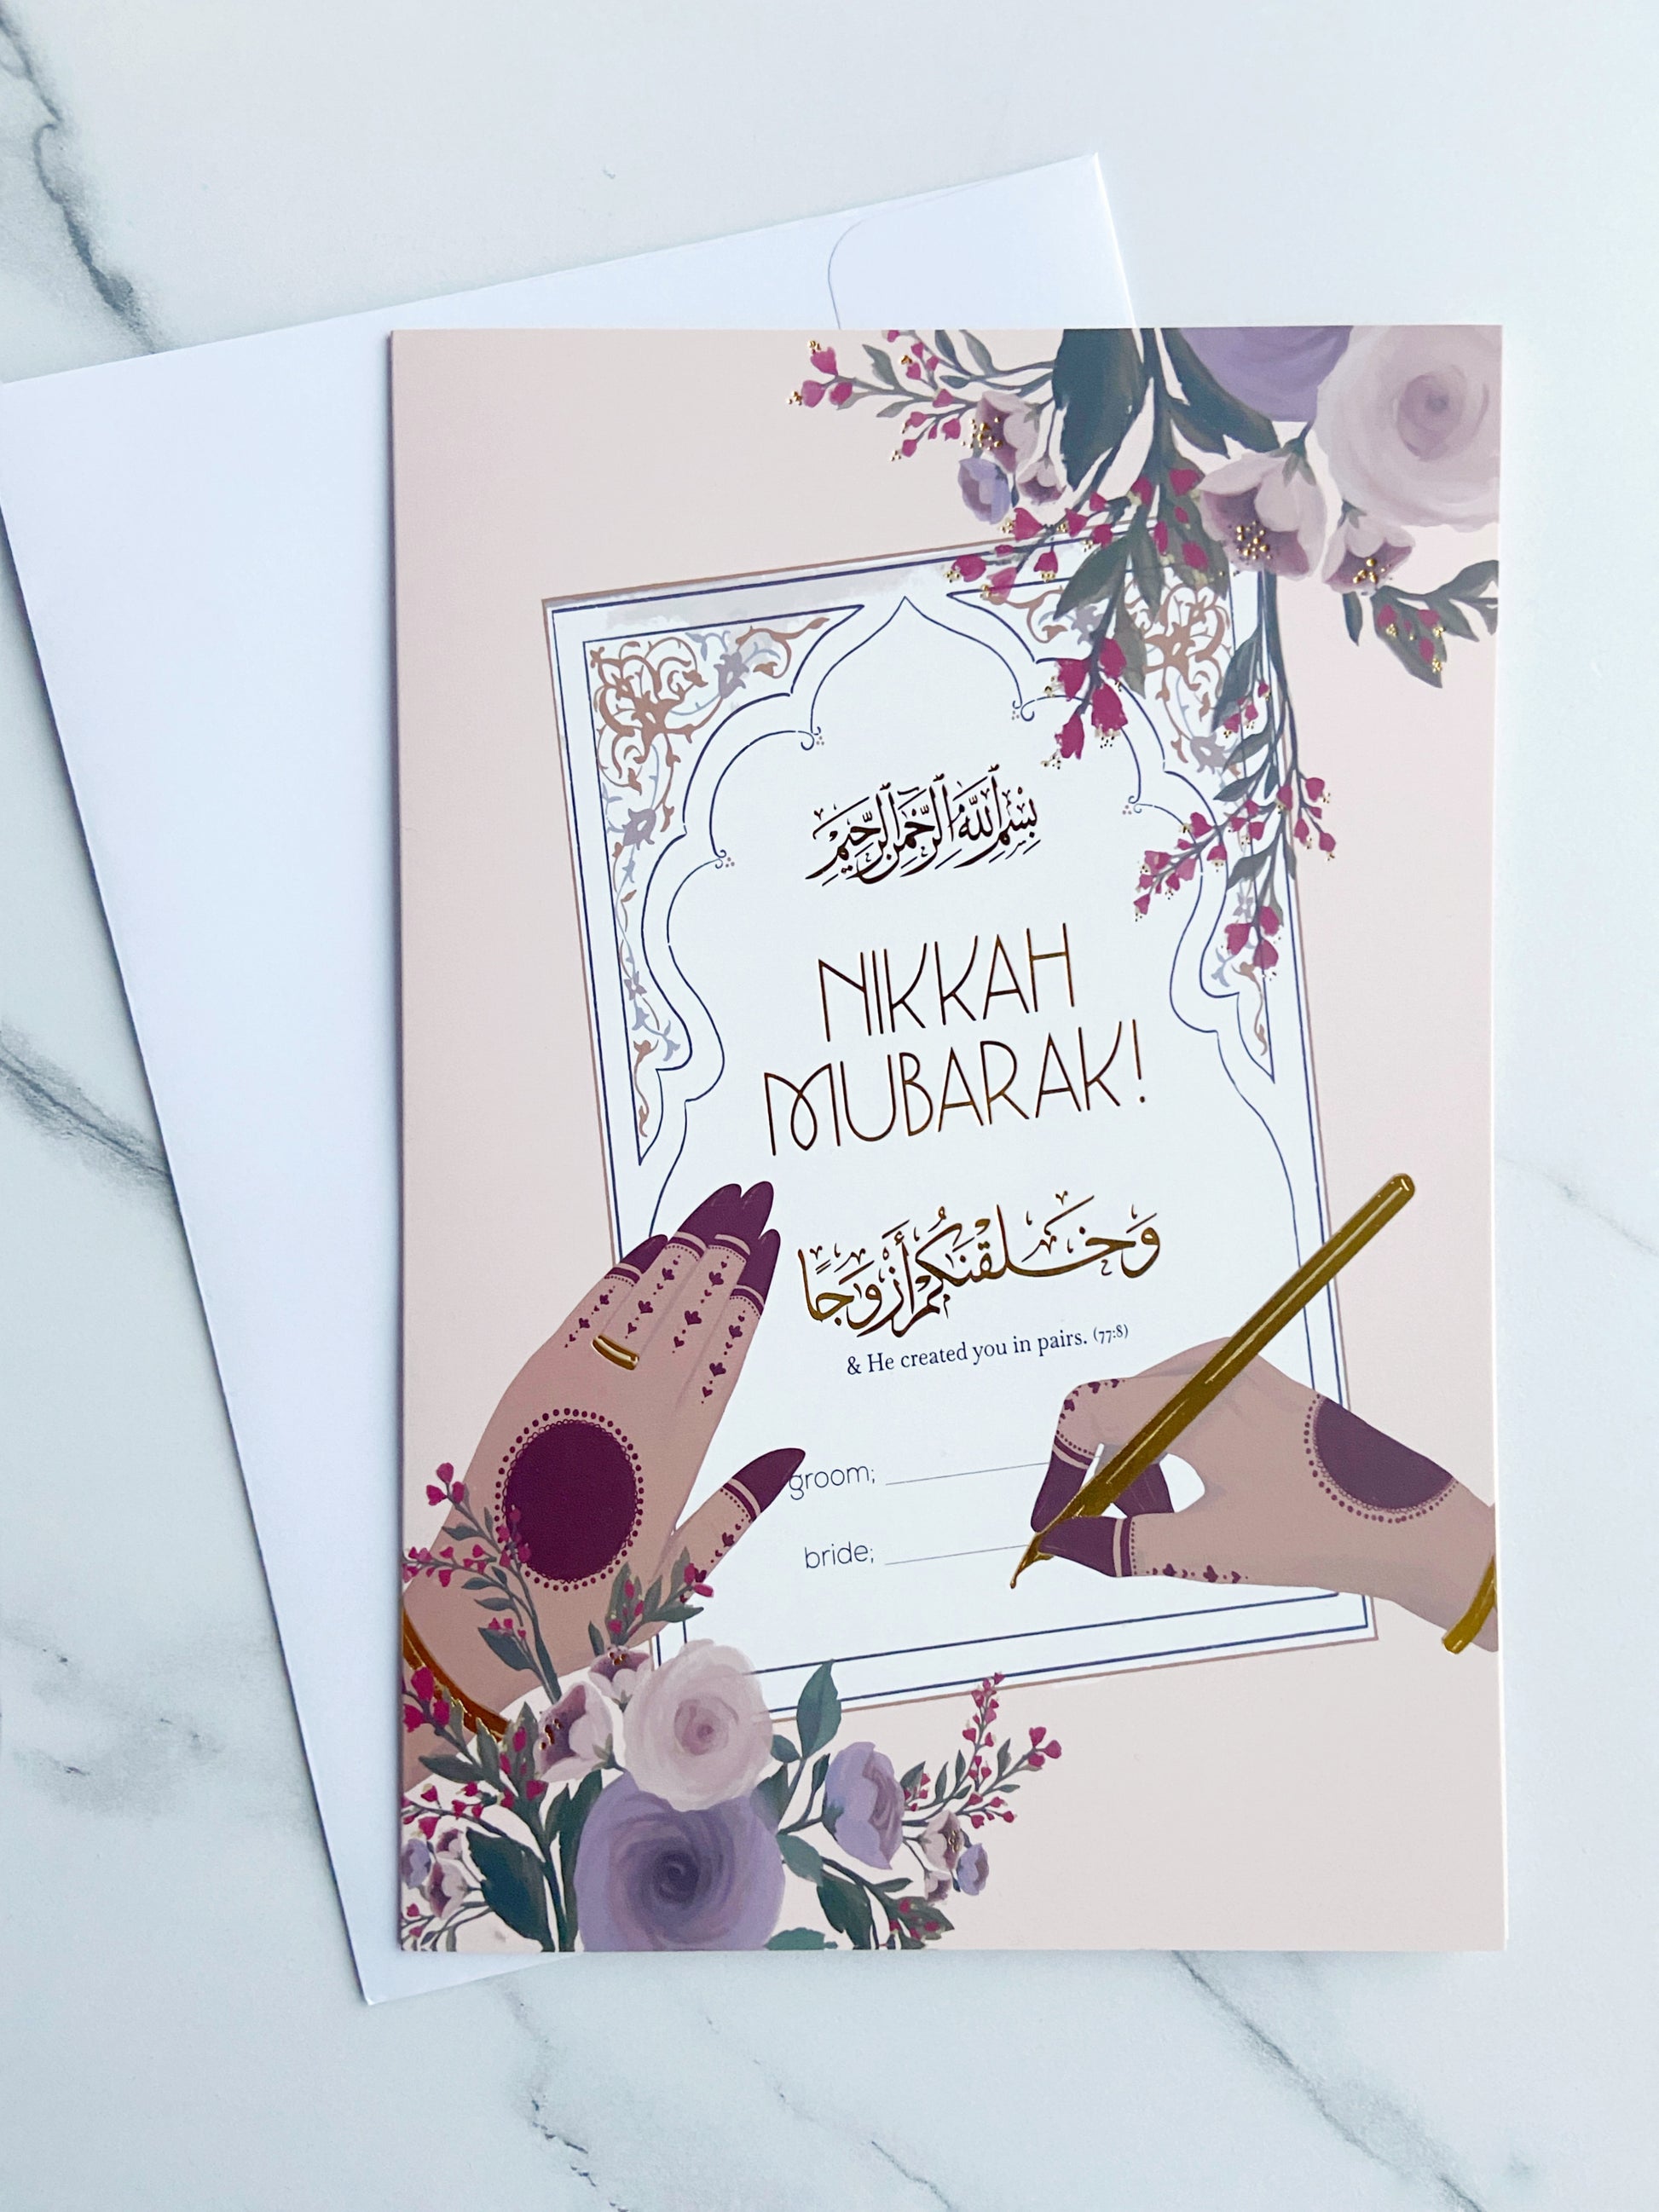 بِسْمِ ٱللَّهِ ٱلرَّحْمَٰنِ ٱلرَّحِيمِ
NIKKAH
MUBARAK!
وَخَلَقْنَكُمْ أَزْوَجًا
& He created you in pairs. (77:8)
groom;
bride;